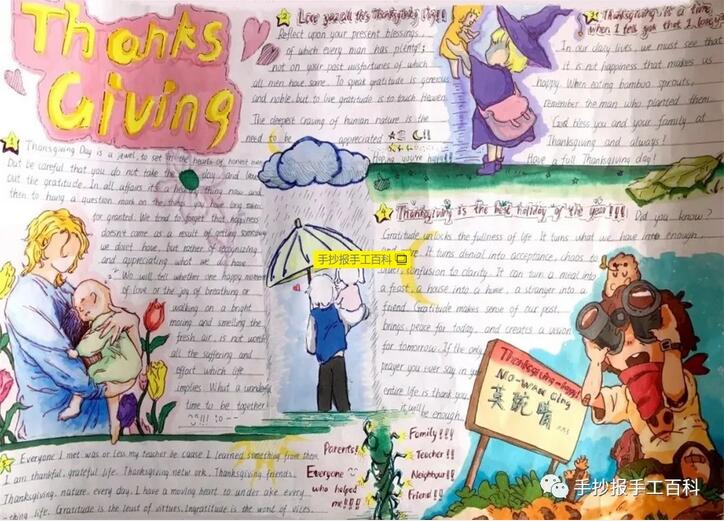 Thanks
Giving
Love you all this Thanksgiving Day!!
Reflect upon your present blessings
of which every man has plenty;
not on your past misfortunes of which
all men have some. To speak gratitude is generous
and noble but to live gratitude is to touch Heaven.
The deepest craving of human nature is the
need to be appreciated
Hoping you're happy!!!
Thanksgiving is a time
when I tell you that I love you
In our daily lives, we must see that
it is not happiness that makes us
happy. When eating bamboo sprouts,
remember the man who planted them
God bless you and your family at
Thanksgiving and always!
Have a full Thanksgiving day!
Thanksgiving Day is a jewel, to set in the hearts of honest men
But be careful that you do not take the day and leave
out the gratitude. In all affairs it's a healthy thing now and
then to hung a question mark on the things you long taken
for granted. We tend to forget that happiness
doesn't come as a result of getting something
we don't have, but rather of recognizing
and appreciating what we do have.
We will tell whether one happy moment
of love or the joy of breathing or
walking on a bright
moing and smelling the
fresh air, is not worth
all the suffering and
effort which life
implies. What a wonderful
time to be together
手抄报手工百科
Thanksgiving is the best holiday of the year!!!
Did you know?
Gratitude unlocks the fullness of life. It turns what we have into enough,
It turns denial into acceptance, chaos to
order, confusion to clarity. It can turn a meal into
a feast, a house into a home, a stranger into a
friend. Gratitude makes sense of our past,
brings peace for today, and creates a vision
for tomorrow. If the only
prayer you ever say in your
entire life is thank you,
it will be enough.
Thanksgiving
莫琬晴
Everyone I met was or less my teacher be cause I learned something from them.
I am thankful, grateful life. Thanksgiving net work, Thanksgiving friends,
Thanksgiving, nature, every day, I have a moving heart to under ake every
thing life. Gratitude is the least of virtues, Ingratitude is the worst of vices.
Parents!
Everyone
who helped
me!!!!
Family!!!
Teacher!!
Neighbour!!
Friend!!
手抄报手工百科